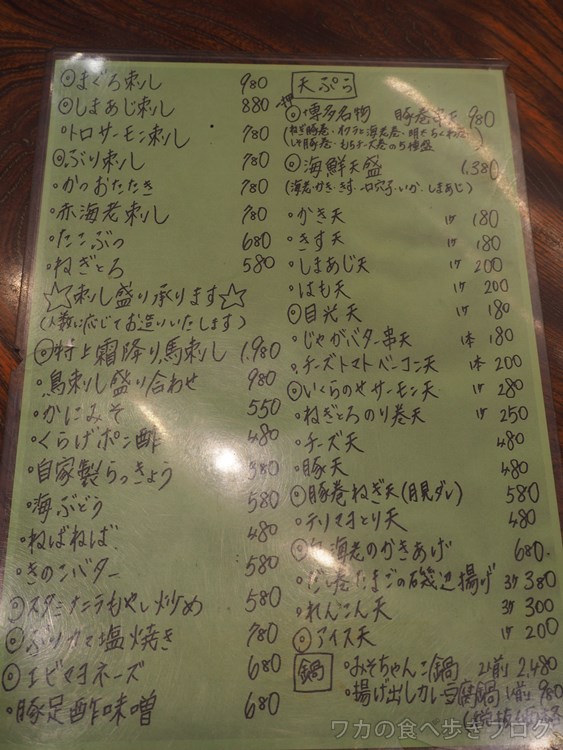 ◎まぐろ刺し 980
◎しまあじ刺し 880
・トロサーモン刺し 780
◎ぶり刺し 780
・かつおたたき 780
・赤海老刺し 780
・たこぶつ 680
・ねぎとろ 580
☆刺し盛り承ります☆
(人数に応じてお造りいたします)
◎特上霜降り馬刺し 1,980
・鳥刺し盛り合わせ 980
・かにみそ 550
・くらげポン酢 480
・自家製らっきょう 580
・海ぶどう 580
・ねばねば 480
・きのこバター 580
◎スタミナニラもやし炒め 580
◎ぶりカマ塩焼き 780
◎エビマヨネーズ 680
・豚足酢味噌 680
天ぷら
◎博多名物 豚巻串天 980
◎海鮮天盛 1,380
(海老・かき・きす・穴子・いか・しまあじ)
・かき天 1ケ 180
・きす天 1ケ 180
・しまあじ天 1ケ 200
・はも天 1ケ 200
◎目光天 1ケ 180
・じゃがバター串天 1本 180
・チーズトマトベーコン天 1本 200
◎いくらのせサーモン天 1ケ 280
・ねぎとろのり巻天 1ケ 250
・チーズ天 480
・豚天 480
◎豚巻ねぎ天(月見ダレ) 580
・テリマヨとり天 480
◎白海老のかきあげ 680
・だし巻たまごの磯辺揚げ 3ケ 380
・れんこん天 3ケ 300
◎アイス天 1ケ 200
鍋 ・みそちゃんこ鍋 2人前 2,480
・揚げ出しカレー豆腐鍋 1人前 980
ワカの食べ歩きブログ